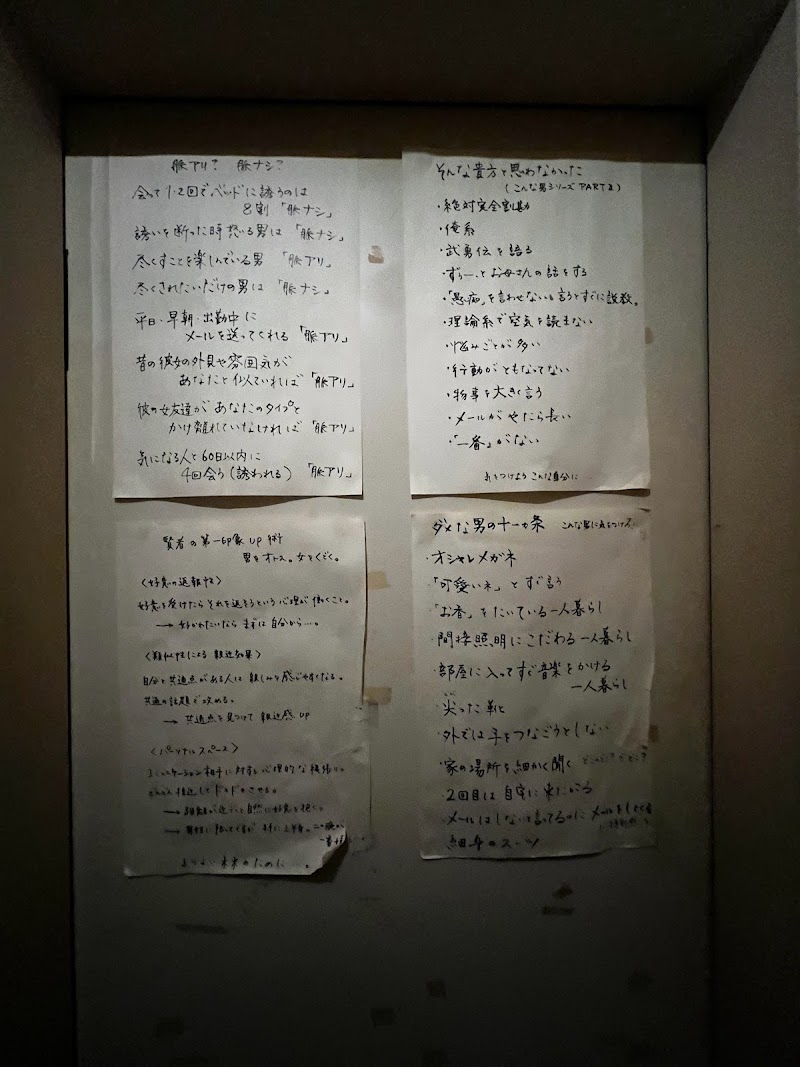 脈アリ? 脈ナシ?
会って1・2回でベッドに誘うのは
8割「脈ナシ」
誘いを断った時怒る男は「脈ナシ」
尽くすことを楽しんでいる男「脈アリ」
尽くされたいだけの男は「脈ナシ」
平日・早朝・出勤中に
メールを送ってくれる「脈アリ」
昔の彼女の外見や雰囲気が
あなたと似ていれば「脈アリ」
彼の女友達があなたのタイプと
かけ離れていなければ「脈アリ」
気になる人と60日以内に
4回会う(誘われる)「脈アリ」
そんな貴方と思わなかった
(こんな男シリーズ PART2)
・絶対完全割勘
・俺系
・武勇伝を語る
・ずぅーっとお母さんの話をする
・「愚痴」を言わせないも言うとすぐに説教。
・理論系で空気を読まない
・悩みごとが多い
・行動がともなってない
・物事を大きく言う
・メールがやたら長い
・「一番」がない
気をつけよう こんな自分に…
賢者の第一印象UP術
男をオトス。女をくどく。
〈好意の返報性〉
好意を受けたらそれを返そうという心理が働くこと。
→ 好かれたいなら まずは 自分から…。
〈類似性による親近効果〉
自分と共通点がある人には親しみを感じやすくなる。
共通の話題で攻める。
→ 共通点を見つけて親近感UP
〈パーソナルスペース〉
コミュニケーション相手に対する心理的な縄張り。
接近してドキドキさせる。
→ 自然に好意を抱く。
よりよい未来のために…。
ダメな男の十一カ条 こんな男に気をつけろ
・オシャレメガネ
・「可愛いネ」とすぐ言う
・「お香」をたいている一人暮らし
・間接照明にこだわる一人暮らし
・部屋に入ってすぐ音楽をかける
一人暮らし
・尖った靴
・外では手をつなごうとしない
・家の場所を細かく聞く
・2回目は自宅に来たがる
・メールはしないと言ってるのに
細身のスーツ